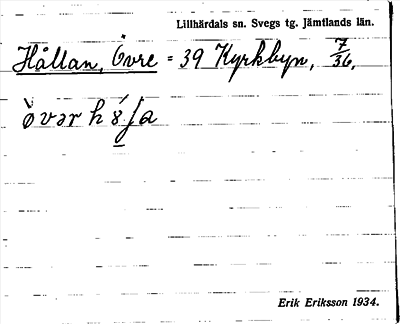 Lillhärdals sn. Svegs tg. Jämtlands län.
Hållan, Övre = 39 Kyrkbyn, 7/36,
Erik Eriksson 1934.